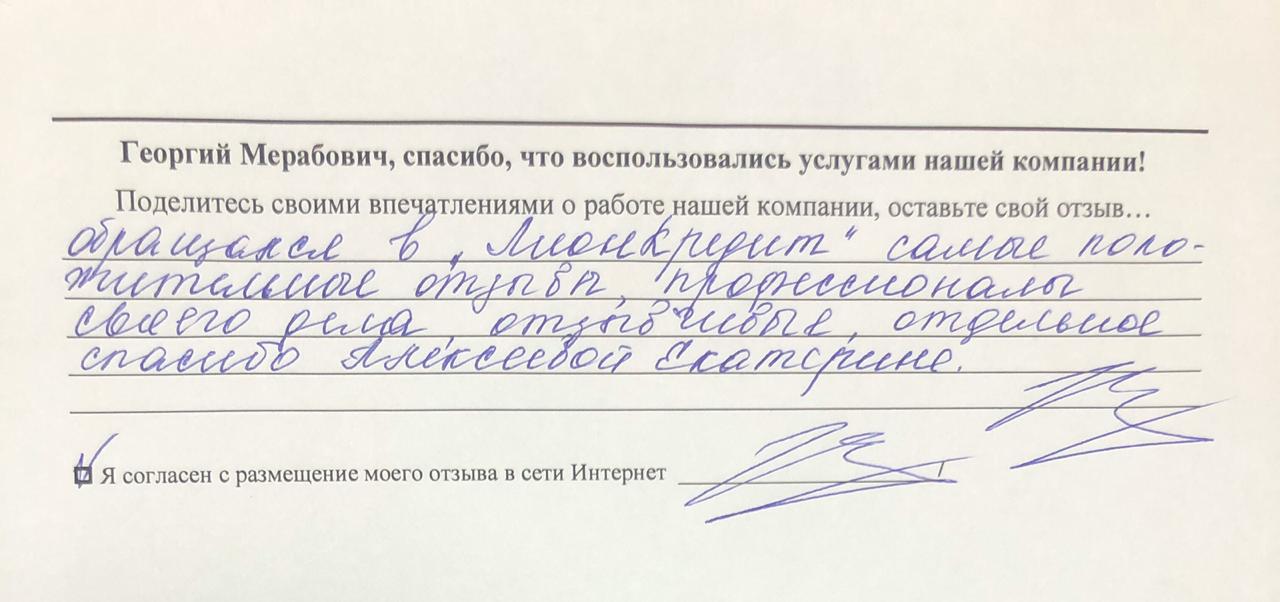 Георгий Мерабович, спасибо, что воспользовались услугами нашей компании!
Поделитесь своими впечатлениями о работе нашей компании, оставьте свой отзыв…
обращался в „Лионкредит“ самые поло-
жительные отзывы, профессионалы
своего дела, отзывчивые, отдельное
спасибо Алексеевой Екатерине.
Я согласен с размещение моего отзыва в сети Интернет